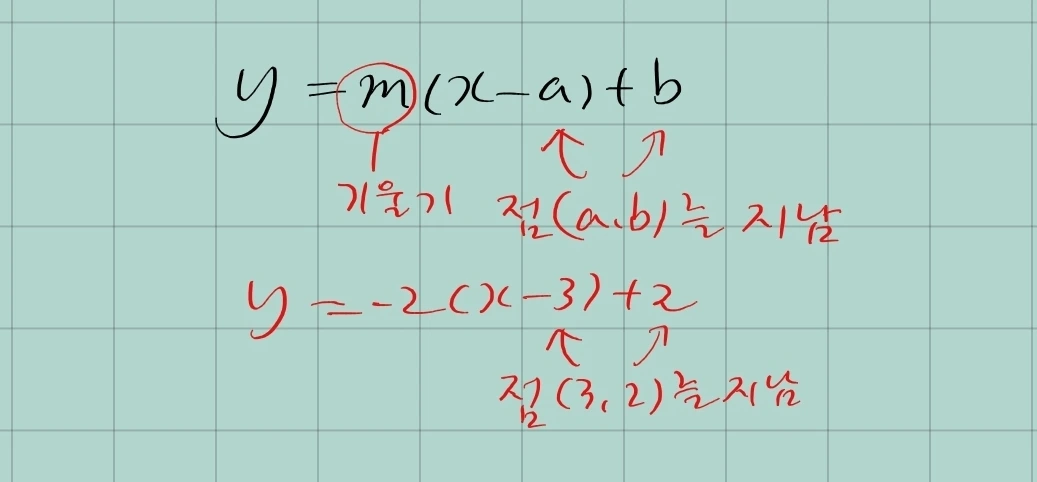 y = m(x-a)+b
기울기 점(a,b)는 지남
y = -2(x-3)+2
점(3,2)는 지남